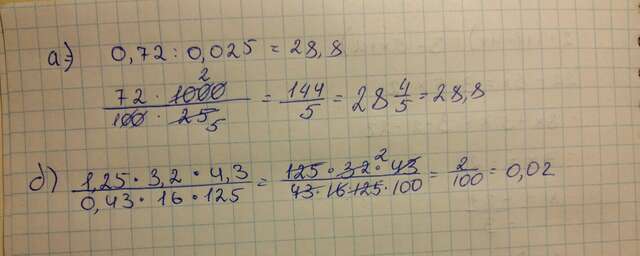 а) 0,72 : 0,025 = 28,8
72 · 1000 2 / 100 · 25 5 = 144/5 = 28 4/5 = 28,8
б) 1,25 · 3,2 · 4,3 / 0,43 · 16 · 125 = 125 · 32 2 · 43 / 43 · 16 · 125 · 100 = 2/100 = 0,02